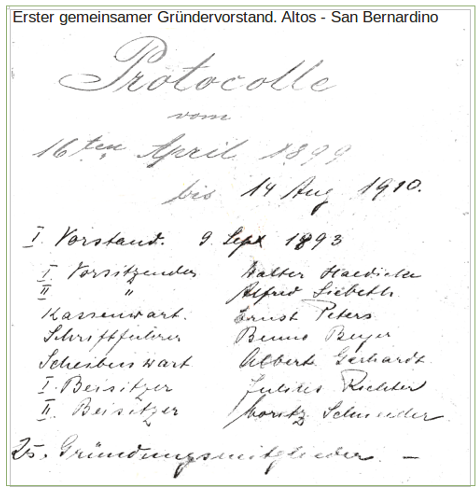 Erster gemeinsamer Gründervorstand. Altos - San Bernardino
Protocolle
vom
16ten April 1899
bis 14 Aug 1910.
I. Vorstand. 9 Sept 1893
I Vorsitzender Walter Haedicke
II " Alfred Siebeth
Kassenwart. Ernst Peters
Schriftführer Benno Beyer
Scheibenwart Albert Gerhardt
I Beisitzer Julius Richter
II. Beisitzer Moritz Schneider
25. Gründungsmitglieder. —